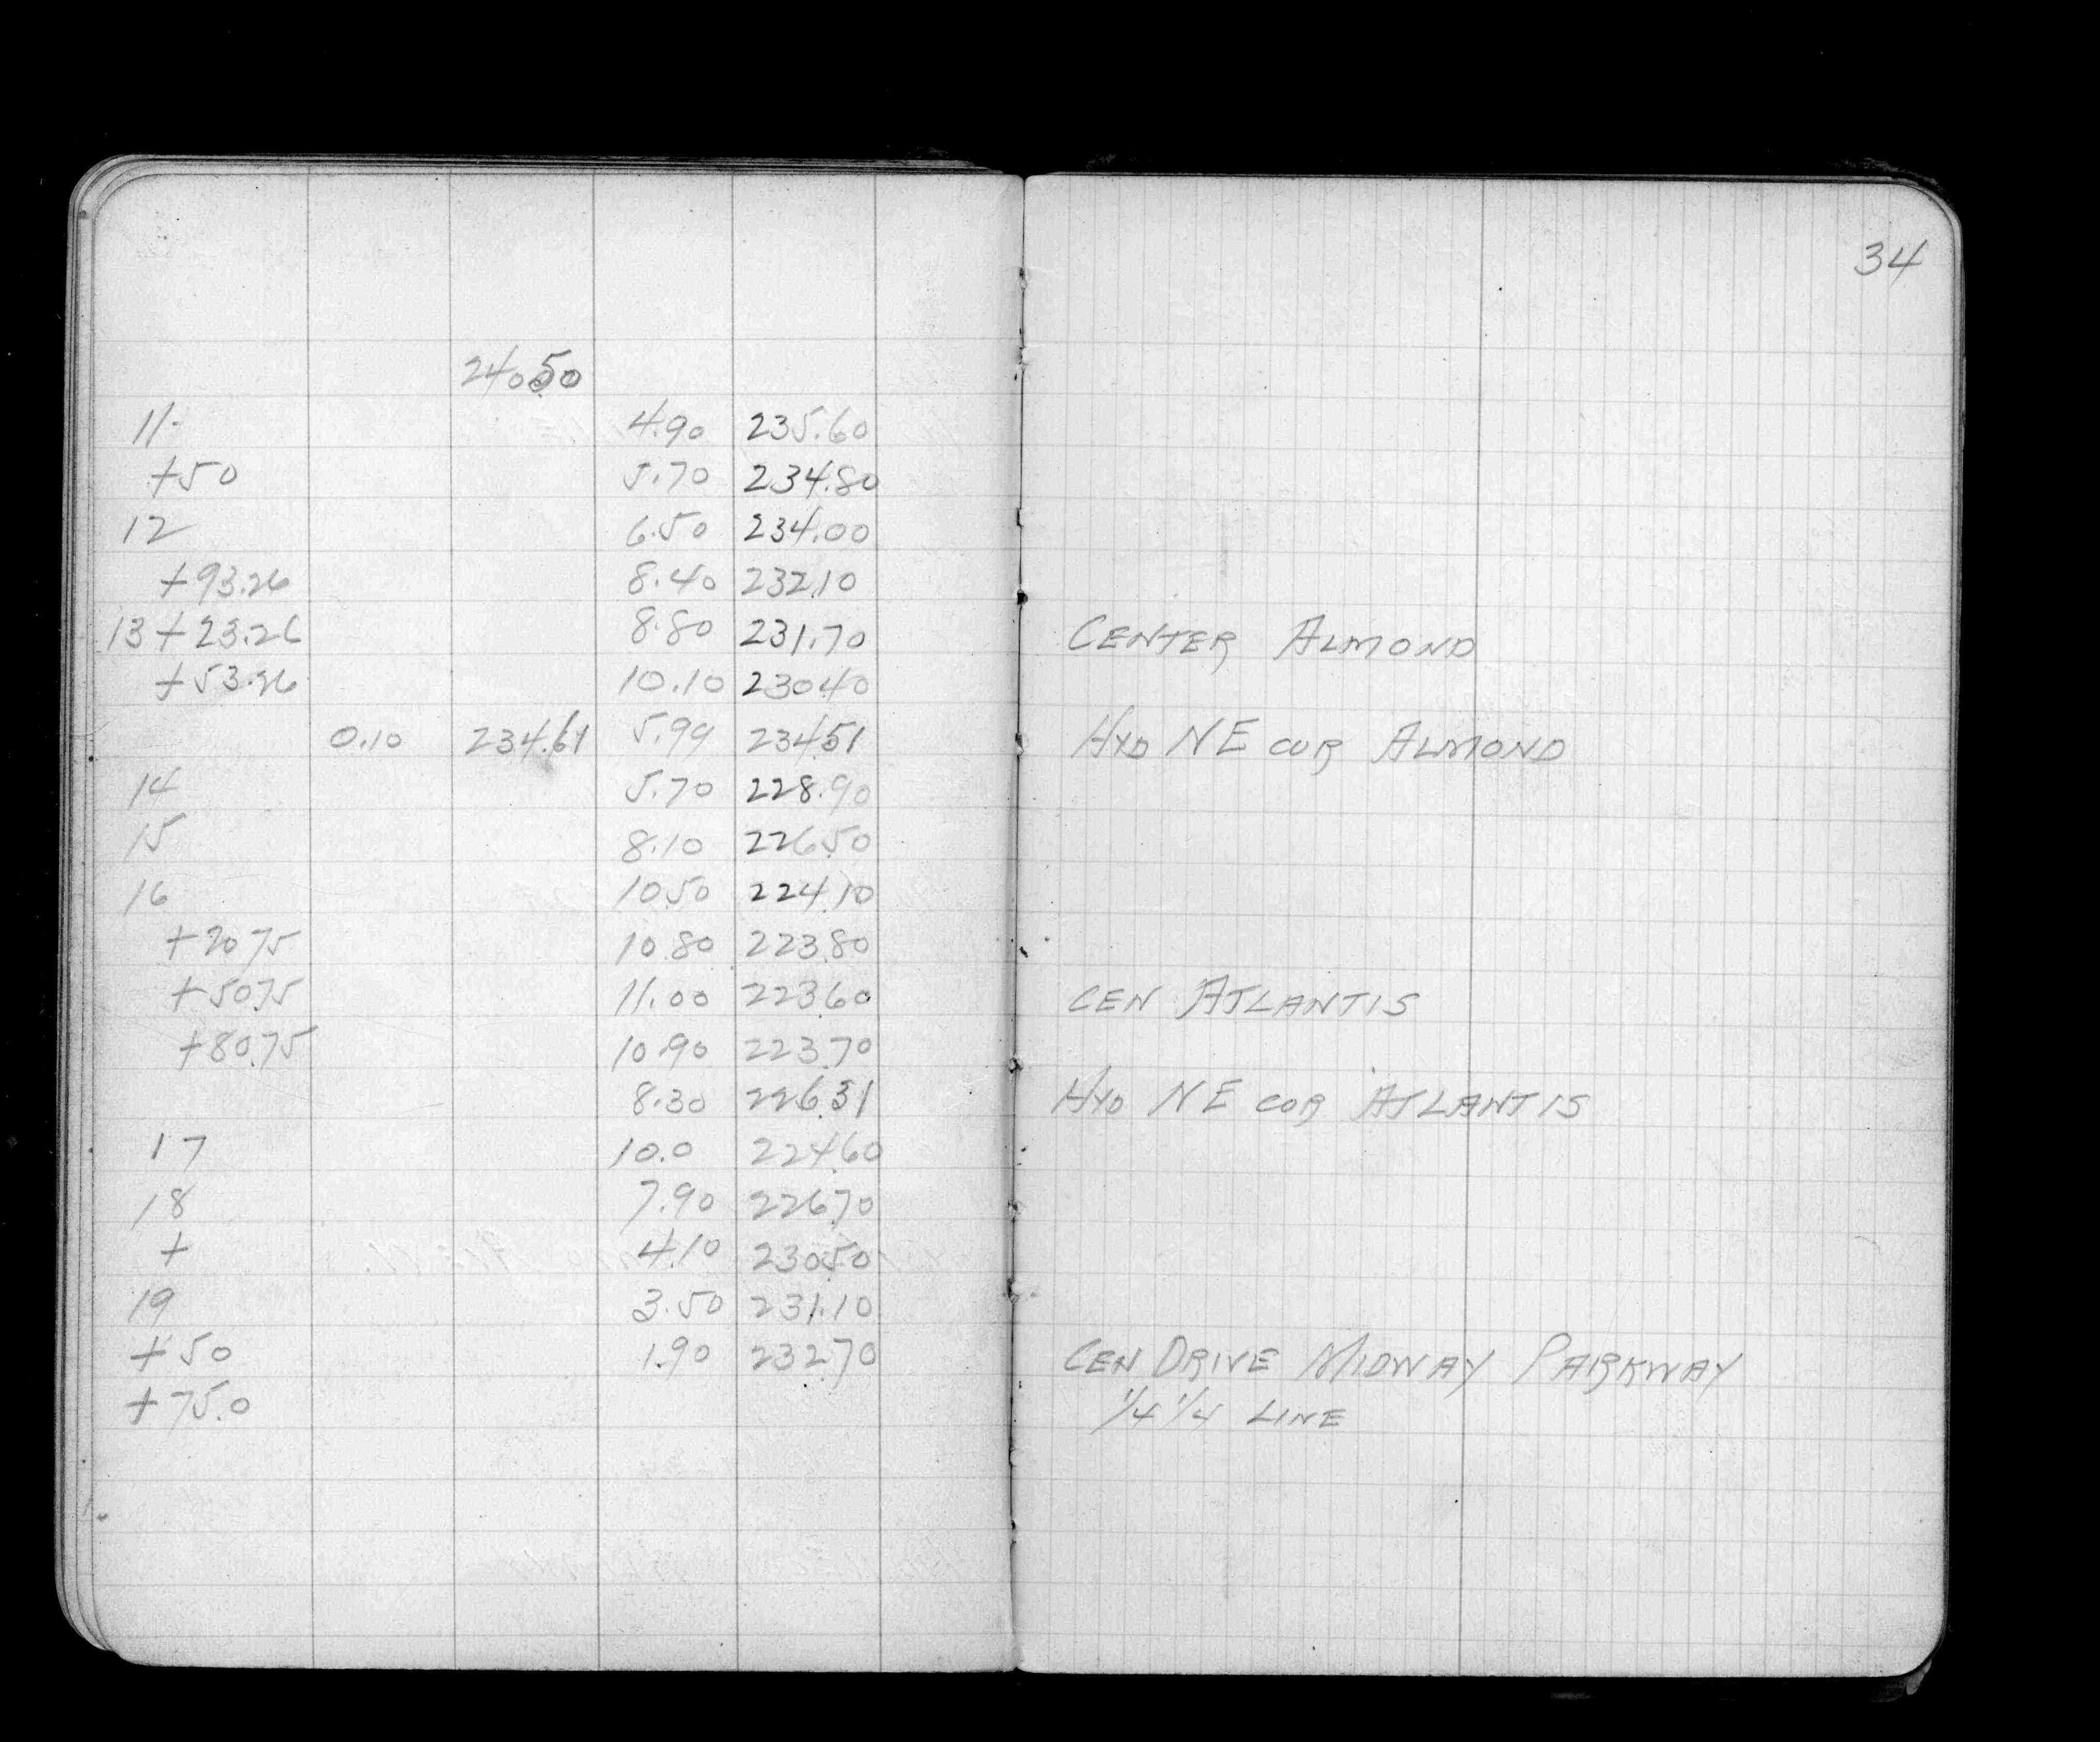 34
240.50
11. 4.90 235.60
+50 5.70 234.80
12 6.50 234.00
+93.26 8.40 232.10
13+23.26 8.80 231.70 CENTER ALMOND
+53.26 10.10 230.40
0.10 234.61 5.99 234.51 HYD NE COR ALMOND
14 5.70 228.90
15 8.10 226.50
16 10.50 224.10
+20.75 10.80 223.80
+50.75 11.00 223.60 CEN ATLANTIS
+80.75 10.90 223.70
8.30 226.31 HYD NE COR ATLANTIS
17 10.0 224.60
18 7.90 226.70
+ 4.10 230.50
19 3.50 231.10
+50 1.90 232.70 CEN DRIVE MIDWAY PARKWAY
+75.0 1/4 1/4 LINE